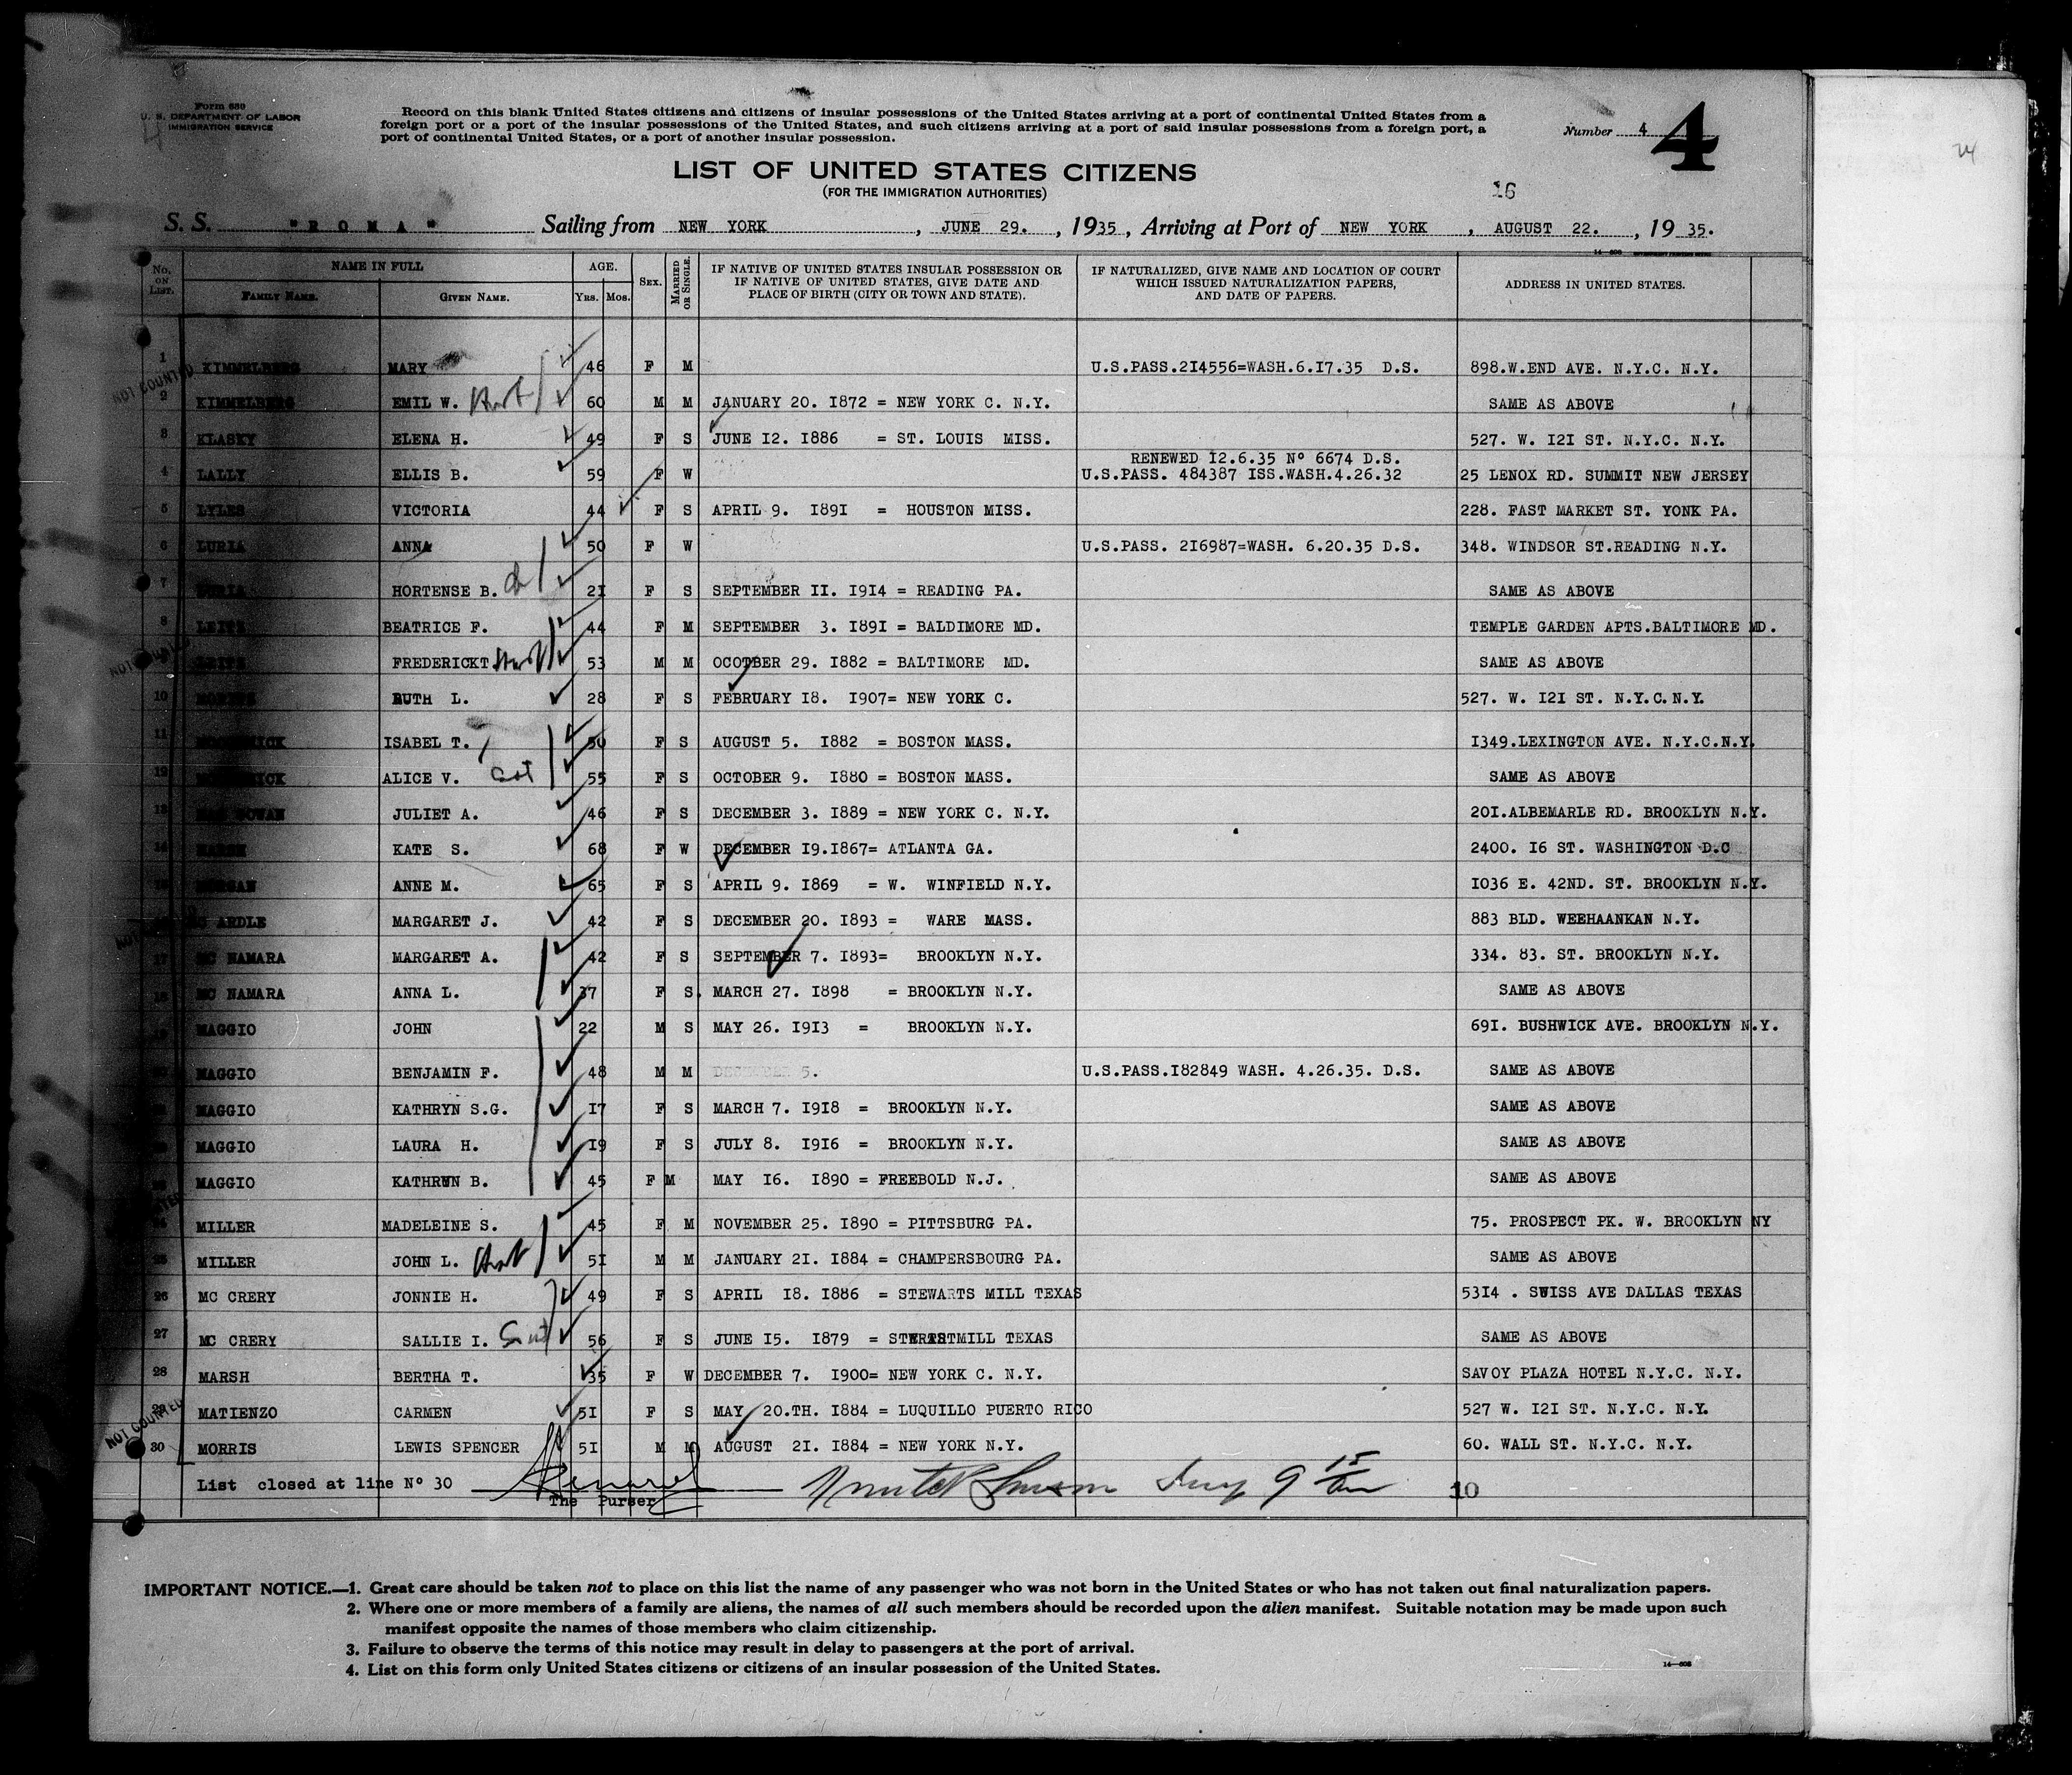 Form 630
U. S. DEPARTMENT OF LABOR
IMMIGRATION SERVICE
Record on this blank United States citizens and citizens of insular possessions of the United States arriving at a port of continental United States from a
foreign port or a port of the insular possessions of the United States, and such citizens arriving at a port of said insular possessions from a foreign port, a
port of continental United States, or a port of another insular possession.
Number 4
4
24
LIST OF UNITED STATES CITIZENS
(FOR THE IMMIGRATION AUTHORITIES)
16
S. S. "ROMA" Sailing from NEW YORK, JUNE 29., 1935, Arriving at Port of NEW YORK, AUGUST 22., 19 35.
No. ON LIST. NAME IN FULL FAMILY NAME. GIVEN NAME. AGE. YRS. MOS. SEX. MARRIED OR SINGLE. IF NATIVE OF UNITED STATES INSULAR POSSESSION OR IF NATIVE OF UNITED STATES, GIVE DATE AND PLACE OF BIRTH (CITY OR TOWN AND STATE). IF NATURALIZED, GIVE NAME AND LOCATION OF COURT WHICH ISSUED NATURALIZATION PAPERS, AND DATE OF PAPERS. ADDRESS IN UNITED STATES.
1 KIMMELBERG MARY 46 F M U.S.PASS.214556=WASH.6.17.35 D.S. 898.W.END AVE. N.Y.C. N.Y.
2 KIMMELBERG EMIL W. 60 M M JANUARY 20. 1872 = NEW YORK C. N.Y. SAME AS ABOVE
3 KLASKY ELENA H. 49 F S JUNE 12. 1886 = ST. LOUIS MISS. 527. W. 121 ST. N.Y.C. N.Y.
RENEWED 12.6.35 Nº 6674 D.S.
4 LALLY ELLIS B. 59 F W U.S.PASS. 484387 ISS.WASH.4.26.32 25 LENOX RD. SUMMIT NEW JERSEY
5 LYLES VICTORIA 44 F S APRIL 9. 1891 = HOUSTON MISS. 228. FAST MARKET ST. YONK PA.
6 LURIA ANNA 50 F W U.S.PASS. 216987=WASH. 6.20.35 D.S. 348. WINDSOR ST.READING N.Y.
7 LURIA HORTENSE B. 21 F S SEPTEMBER 11. 1914 = READING PA. SAME AS ABOVE
8 LEITZ BEATRICE F. 44 F M SEPTEMBER 3. 1891 = BALDIMORE MD. TEMPLE GARDEN APTS.BALTIMORE MD.
LEITZ FREDERICKT 53 M M OCOTBER 29. 1882 = BALTIMORE MD. SAME AS ABOVE
10 RUTH L. 28 F S FEBRUARY 18. 1907= NEW YORK C. 527. W. 121 ST. N.Y.C.N.Y.
11 ISABEL T. 50 F S AUGUST 5. 1882 = BOSTON MASS. 1349.LEXINGTON AVE. N.Y.C.N.Y.
12 ALICE V. 55 F S OCTOBER 9. 1880 = BOSTON MASS. SAME AS ABOVE
13 JULIET A. 46 F S DECEMBER 3. 1889 = NEW YORK C. N.Y. 201.ALBEMARLE RD. BROOKLYN N.Y.
14 MARSH KATE S. 68 F W DECEMBER 19.1867= ATLANTA GA. 2400. 16 ST. WASHINGTON D.C
ANNE M. 65 F S APRIL 9. 1869 = W. WINFIELD N.Y. 1036 E. 42ND. ST. BROOKLYN N.Y.
ARDLE MARGARET J. 42 F S DECEMBER 20. 1893 = WARE MASS. 883 BLD. WEEHAANKAN N.Y.
17 MC NAMARA MARGARET A. 42 F S SEPTEMBER 7. 1893= BROOKLYN N.Y. 334. 83. ST. BROOKLYN N.Y.
18 MC NAMARA ANNA L. 37 F S. MARCH 27. 1898 = BROOKLYN N.Y. SAME AS ABOVE
MAGGIO JOHN 22 M S MAY 26. 1913 = BROOKLYN N.Y. 691. BUSHWICK AVE. BROOKLYN N.Y.
MAGGIO BENJAMIN F. 48 M M DECEMBER 5. U.S.PASS.182849 WASH. 4.26.35. D.S. SAME AS ABOVE
MAGGIO KATHRYN S.G. 17 F S MARCH 7. 1918 = BROOKLYN N.Y. SAME AS ABOVE
MAGGIO LAURA H. 19 F S JULY 8. 1916 = BROOKLYN N.Y. SAME AS ABOVE
MAGGIO KATHRWN B. 45 F M MAY 16. 1890 = FREEBOLD N.J. SAME AS ABOVE
MILLER MADELEINE S. 45 F M NOVEMBER 25. 1890 = PITTSBURG PA. 75. PROSPECT PK. W. BROOKLYN NY
25 MILLER JOHN L. 51 M M JANUARY 21. 1884 = CHAMPERSBOURG PA. SAME AS ABOVE
26 MC CRERY JONNIE H. 49 F S APRIL 18. 1886 = STEWARTS MILL TEXAS 5314 . SWISS AVE DALLAS TEXAS
27 MC CRERY SALLIE I. 56 F S JUNE 15. 1879 = MILL TEXAS SAME AS ABOVE
28 MARSH BERTHA T. 35 F W DECEMBER 7. 1900= NEW YORK C. N.Y. SAVOY PLAZA HOTEL N.Y.C. N.Y.
29 MATIENZO CARMEN 51 F S MAY 20.TH. 1884 = LUQUILLO PUERTO RICO 527 W. 121 ST. N.Y.C. N.Y.
NOT COUNTED
30 MORRIS LEWIS SPENCER 51 M M AUGUST 21. 1884 = NEW YORK N.Y. 60. WALL ST. N.Y.C. N.Y.
List closed at line Nº 30
The Purser
10
IMPORTANT NOTICE.—1. Great care should be taken not to place on this list the name of any passenger who was not born in the United States or who has not taken out final naturalization papers.
2. Where one or more members of a family are aliens, the names of all such members should be recorded upon the alien manifest. Suitable notation may be made upon such
manifest opposite the names of those members who claim citizenship.
3. Failure to observe the terms of this notice may result in delay to passengers at the port of arrival.
4. List on this form only United States citizens or citizens of an insular possession of the United States.